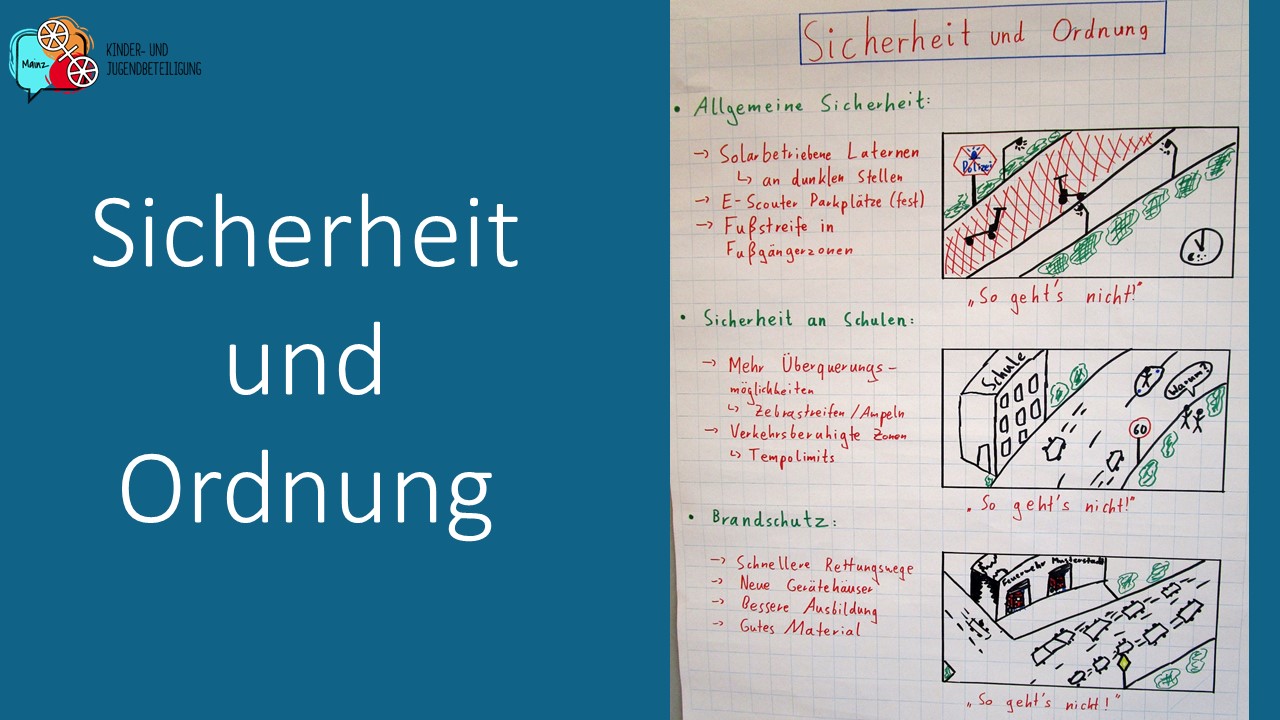 Mainz
KINDER- UND
JUGENDBETEILIGUNG
Sicherheit
und
Ordnung
Sicherheit und Ordnung
• Allgemeine Sicherheit:
→ Solarbetriebene Laternen
↳ an dunklen Stellen
→ E-Scouter Parkplätze (fest)
→ Fußstreife in
Fußgängerzonen
Polizei
„So geht's nicht!"
• Sicherheit an Schulen:
→ Mehr Überquerungs-
möglichkeiten
↳ Zebrastreifen / Ampeln
→ Verkehrsberuhigte Zonen
↳ Tempolimits
Schule
Warum?
60
„So geht's nicht!"
• Brandschutz:
→ Schnellere Rettungswege
→ Neue Gerätehäuser
→ Bessere Ausbildung
→ Gutes Material
Feuerwehr Musterstadt
„So geht's nicht!"